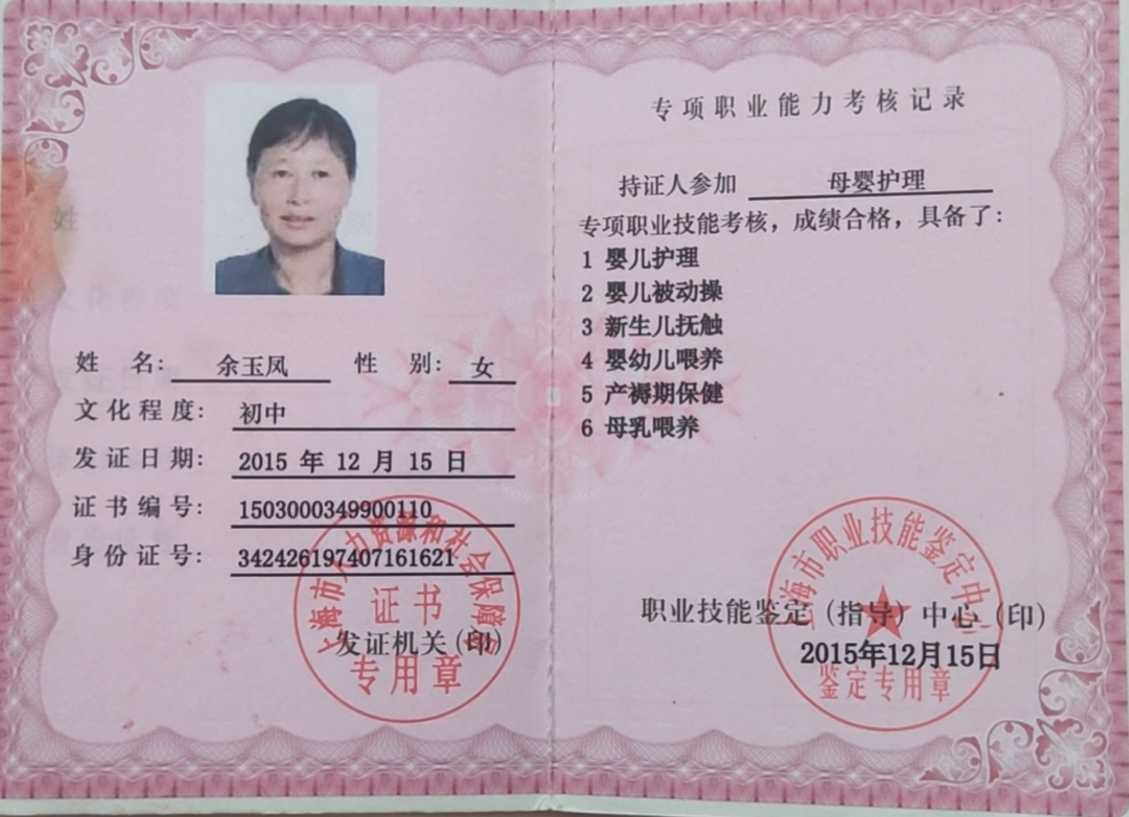 姓 名: 余玉凤 性 别: 女
文化程度: 初中
发证日期: 2015 年 12 月 15 日
证书编号: 1503000349900110
身份证号: 342426197407161621
上海市人力资源和社会保障局
证书
发证机关(印)
专用章
专项职业能力考核记录
持证人参加 母婴护理
专项职业技能考核，成绩合格，具备了:
1 婴儿护理
2 婴儿被动操
3 新生儿抚触
4 婴幼儿喂养
5 产褥期保健
6 母乳喂养
上海市职业技能鉴定中心
职业技能鉴定(指导)中心(印)
2015年12月15日
鉴定专用章